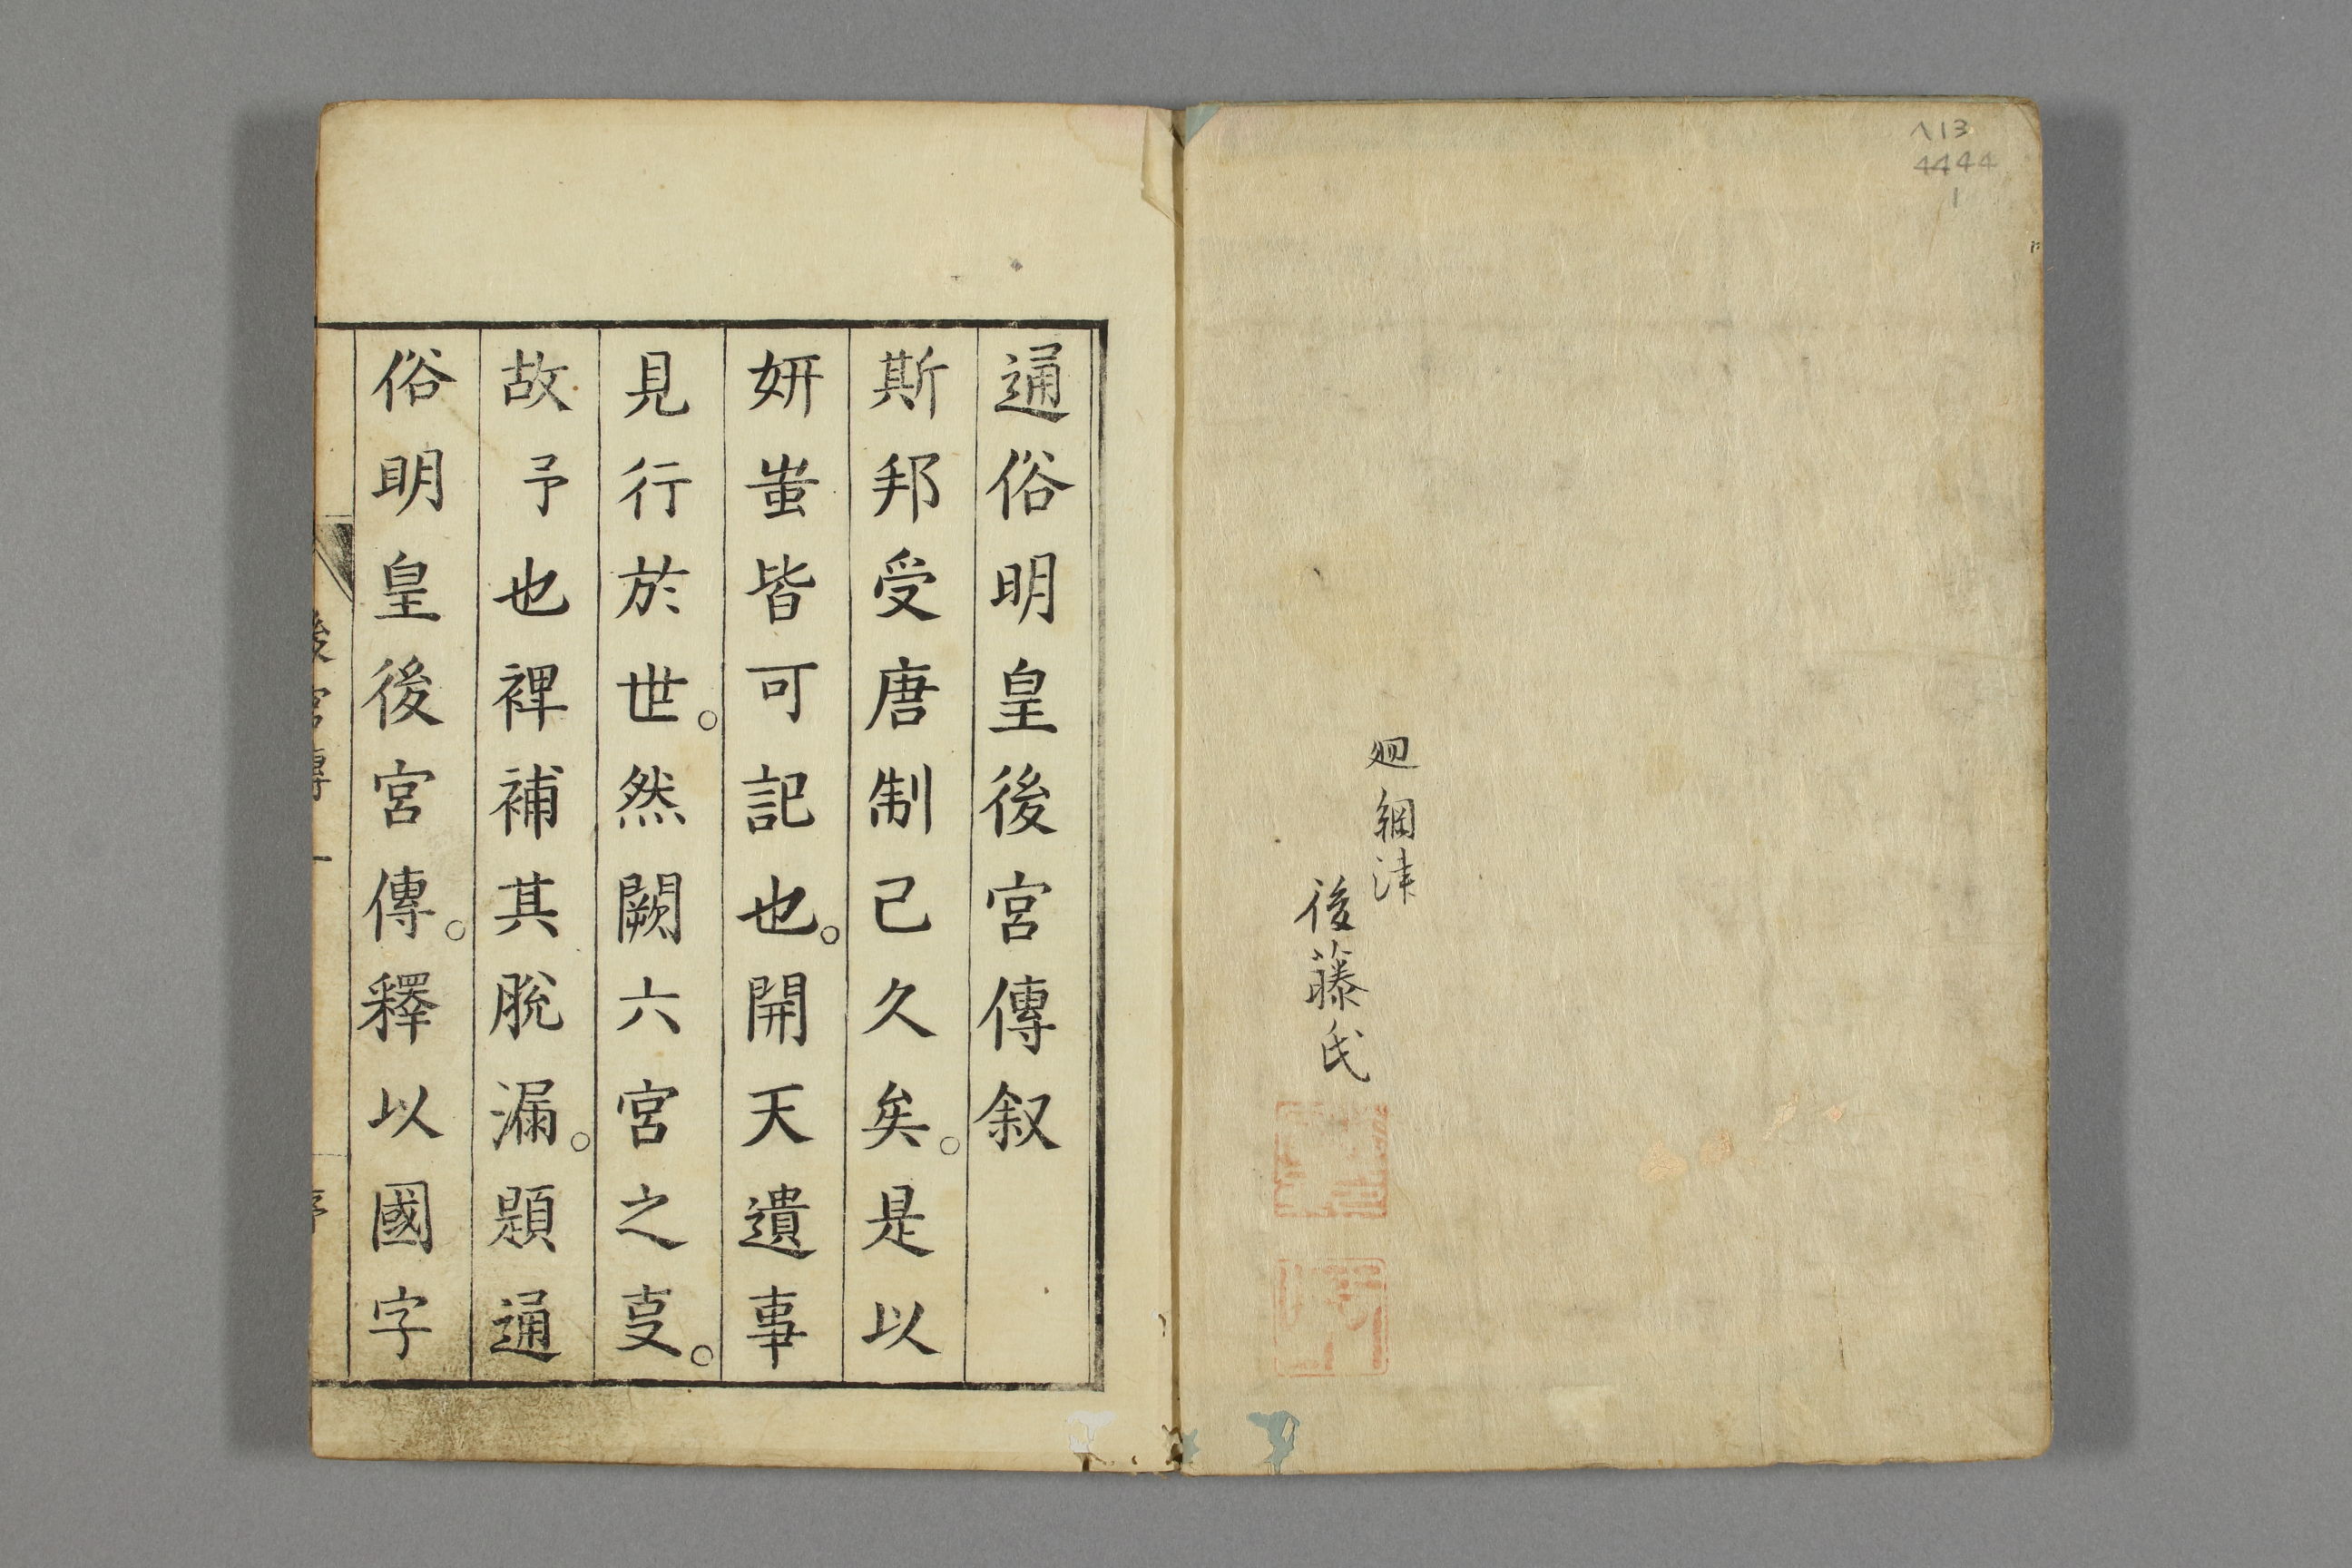 ヘ13
4444
1
廻綱津
後藤氏
通俗明皇後宮傳叙
斯邦受唐制己久矣。是以
妍蚩皆可記也。開天遺事
見行於世。然闕六宮之㕝。
故予也裨補其脫漏。題通
俗明皇後宮傳。釋以國字
後宮傳 一
序